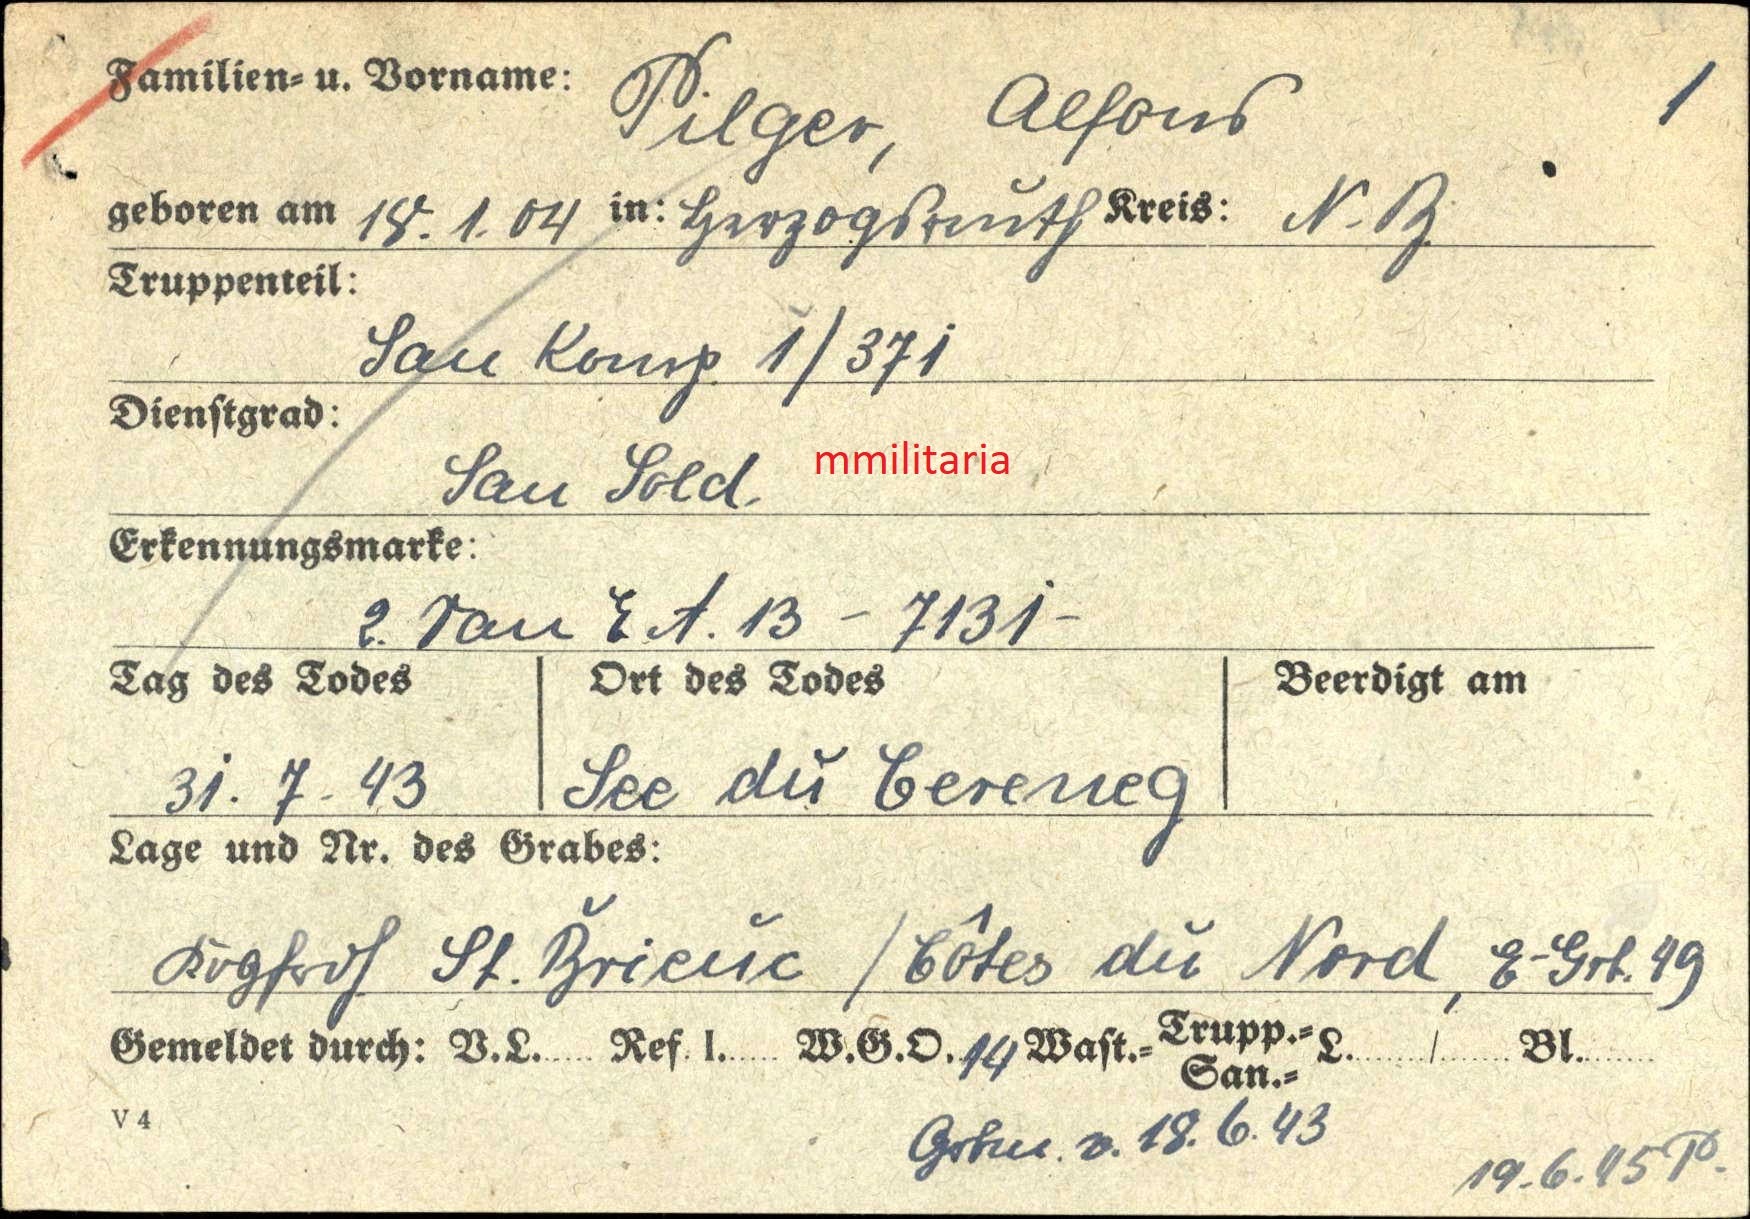 Familien- u. Vorname: Pilger, Alfons 1
geboren am 18. 1. 04 in: Herzogsreuth Kreis: N. B.
Truppenteil:
San Komp 1/371
Dienstgrad:
San Sold. mmilitaria
Erkennungsmarke:
2. San E. A. 13 - 7131 -
Tag des Todes Ort des Todes Beerdigt am
31. 7. 43 See du Cereneg
Lage und Nr. des Grabes:
St. Brieuc / Côtes du Nord, E-Grb. 49
Gemeldet durch: V.L...... Ref. I...... W.G.O. 14 Wast.= Trupp.= San.= L......../........ Bl.........
V 4 v. 18. 6. 43
19. 6. 45 P.